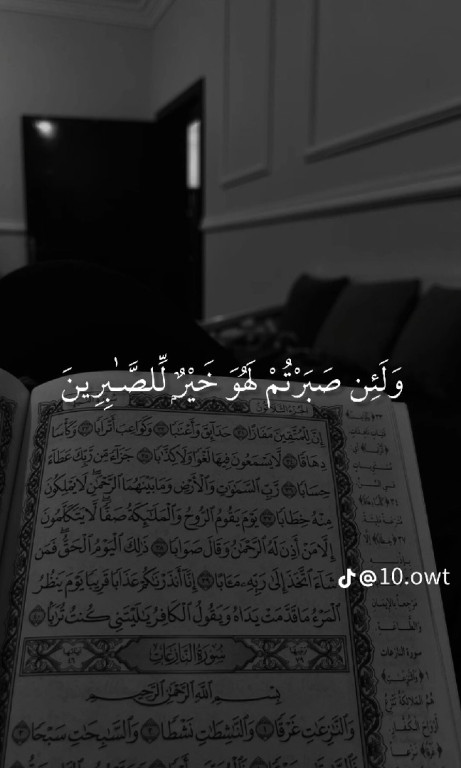 وَلَئِن صَبَرْتُمْ لَهُوَ خَيْرٌ لِّلصَّـٰبِرِينَ
إِنَّ لِلْمُتَّقِينَ مَفَازًا ٣١ حَدَآئِقَ وَأَعْنَـٰبًا ٣٢ وَكَوَاعِبَ أَتْرَابًا ٣٣ وَكَأْسًا
دِهَاقًا ٣٤ لَّا يَسْمَعُونَ فِيهَا لَغْوًا وَلَا كِذَّٰبًا ٣٥ جَزَآءً مِّن رَّبِّكَ عَطَآءً
حِسَابًا ٣٦ رَّبِّ ٱلسَّمَـٰوَٰتِ وَٱلْأَرْضِ وَمَا بَيْنَهُمَا ٱلرَّحْمَـٰنِ لَا يَمْلِكُونَ
مِنْهُ خِطَابًا ٣٧ يَوْمَ يَقُومُ ٱلرُّوحُ وَٱلْمَلَـٰٓئِكَةُ صَفًّا لَّا يَتَكَلَّمُونَ
إِلَّا مَنْ أَذِنَ لَهُ ٱلرَّحْمَـٰنُ وَقَالَ صَوَابًا ٣٨ ذَٰلِكَ ٱلْيَوْمُ ٱلْحَقُّ فَمَن
شَآءَ ٱتَّخَذَ إِلَىٰ رَبِّهِۦ مَـَٔابًا ٣٩ إِنَّآ أَنذَرْنَـٰكُمْ عَذَابًا قَرِيبًا يَوْمَ يَنظُرُ
@10.owt
ٱلْمَرْءُ مَا قَدَّمَتْ يَدَاهُ وَيَقُولُ ٱلْكَافِرُ يَـٰلَيْتَنِى كُنتُ تُرَٰبًۢا ٤٠
سُورَةُ النَّازِعَاتِ
بِسْمِ ٱللَّهِ ٱلرَّحْمَـٰنِ ٱلرَّحِيمِ
وَٱلنَّـٰزِعَـٰتِ غَرْقًا ١ وَٱلنَّـٰشِطَـٰتِ نَشْطًا ٢ وَٱلسَّـٰبِحَـٰتِ سَبْحًا ٣